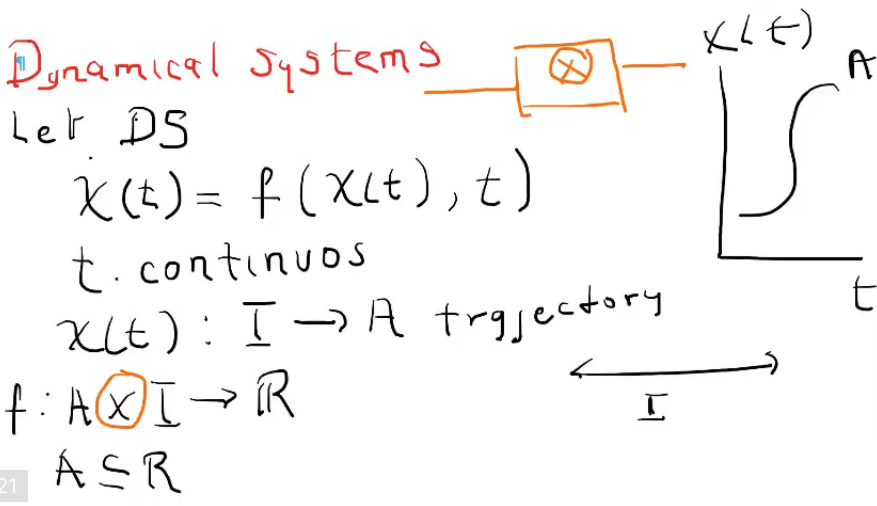 Dynamical Systems
Let DS
ẋ(t) = f(x(t), t)
t. continuos
x(t) : I → A trajectory
f : A × I → ℝ
A ⊆ R
21
×
x(t)
A
t
I